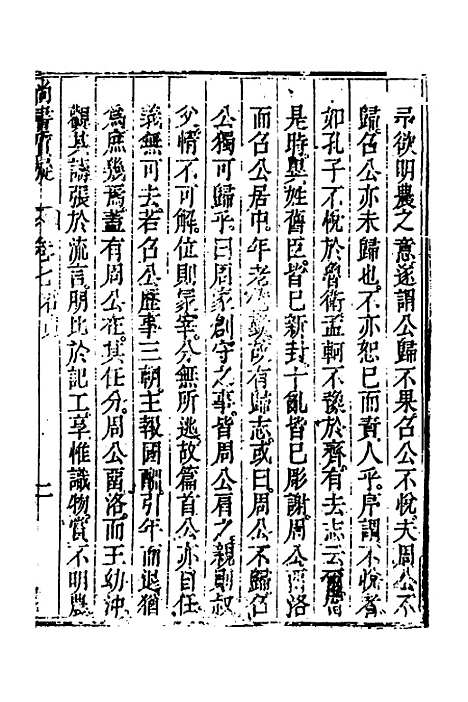 示欲明農之意遂謂公歸不果召公不悅夫周公不
歸召公亦未歸也不亦恕已而責人乎序謂不悅者
如孔子不悅於魯衛孟軻不豫於齊有去志云爾
是時異姓舊臣皆已新封十亂皆已彫謝周公留洛
而召公居中年老
有歸志或曰周公不歸召
公獨可歸乎曰周家創守之事皆周公肩之親則叔
父情不可解位則冢宰分無所逃故篇首公亦自任
義無可去若召公歷事三朝主報國酬引年而退猶
爲庶幾焉蓋有周公在其任分周公留洛而王幼沖
觀其譸張於流言朋比於記工享惟識物賞不明農
尚書
卷七
二